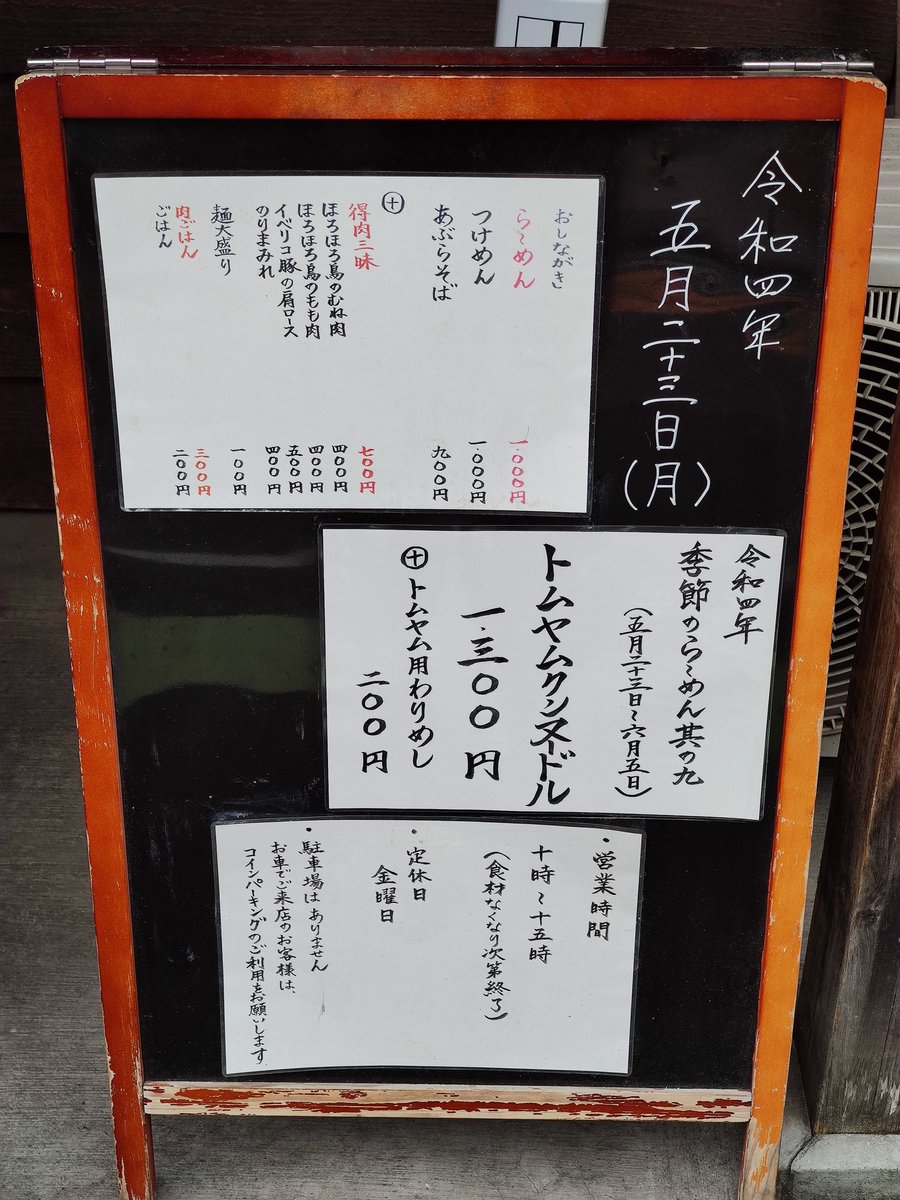 令和四年
五月二十三日(月)
おしながき
らーめん 一.〇〇〇円
つけめん 一.〇〇〇円
あぶらそば 九〇〇円
㊉
得肉三昧 七〇〇円
ほろほろ鳥のむね肉 四〇〇円
ほろほろ鳥のもも肉 四〇〇円
イベリコ豚の肩ロース 五〇〇円
のりまみれ 四〇〇円
麺大盛り 一〇〇円
肉ごはん 三〇〇円
ごはん 二〇〇円
令和四年
季節のらーめん其の九
(五月二十三日〜六月五日)
トムヤムクンヌードル
一.三〇〇円
㊉トムヤム用わりめし
二〇〇円
・営業時間
十時〜十五時
(食材なくなり次第終了)
・定休日
金曜日
・駐車場はありません
お車でご来店のお客様は、
コインパーキングのご利用をお願いします